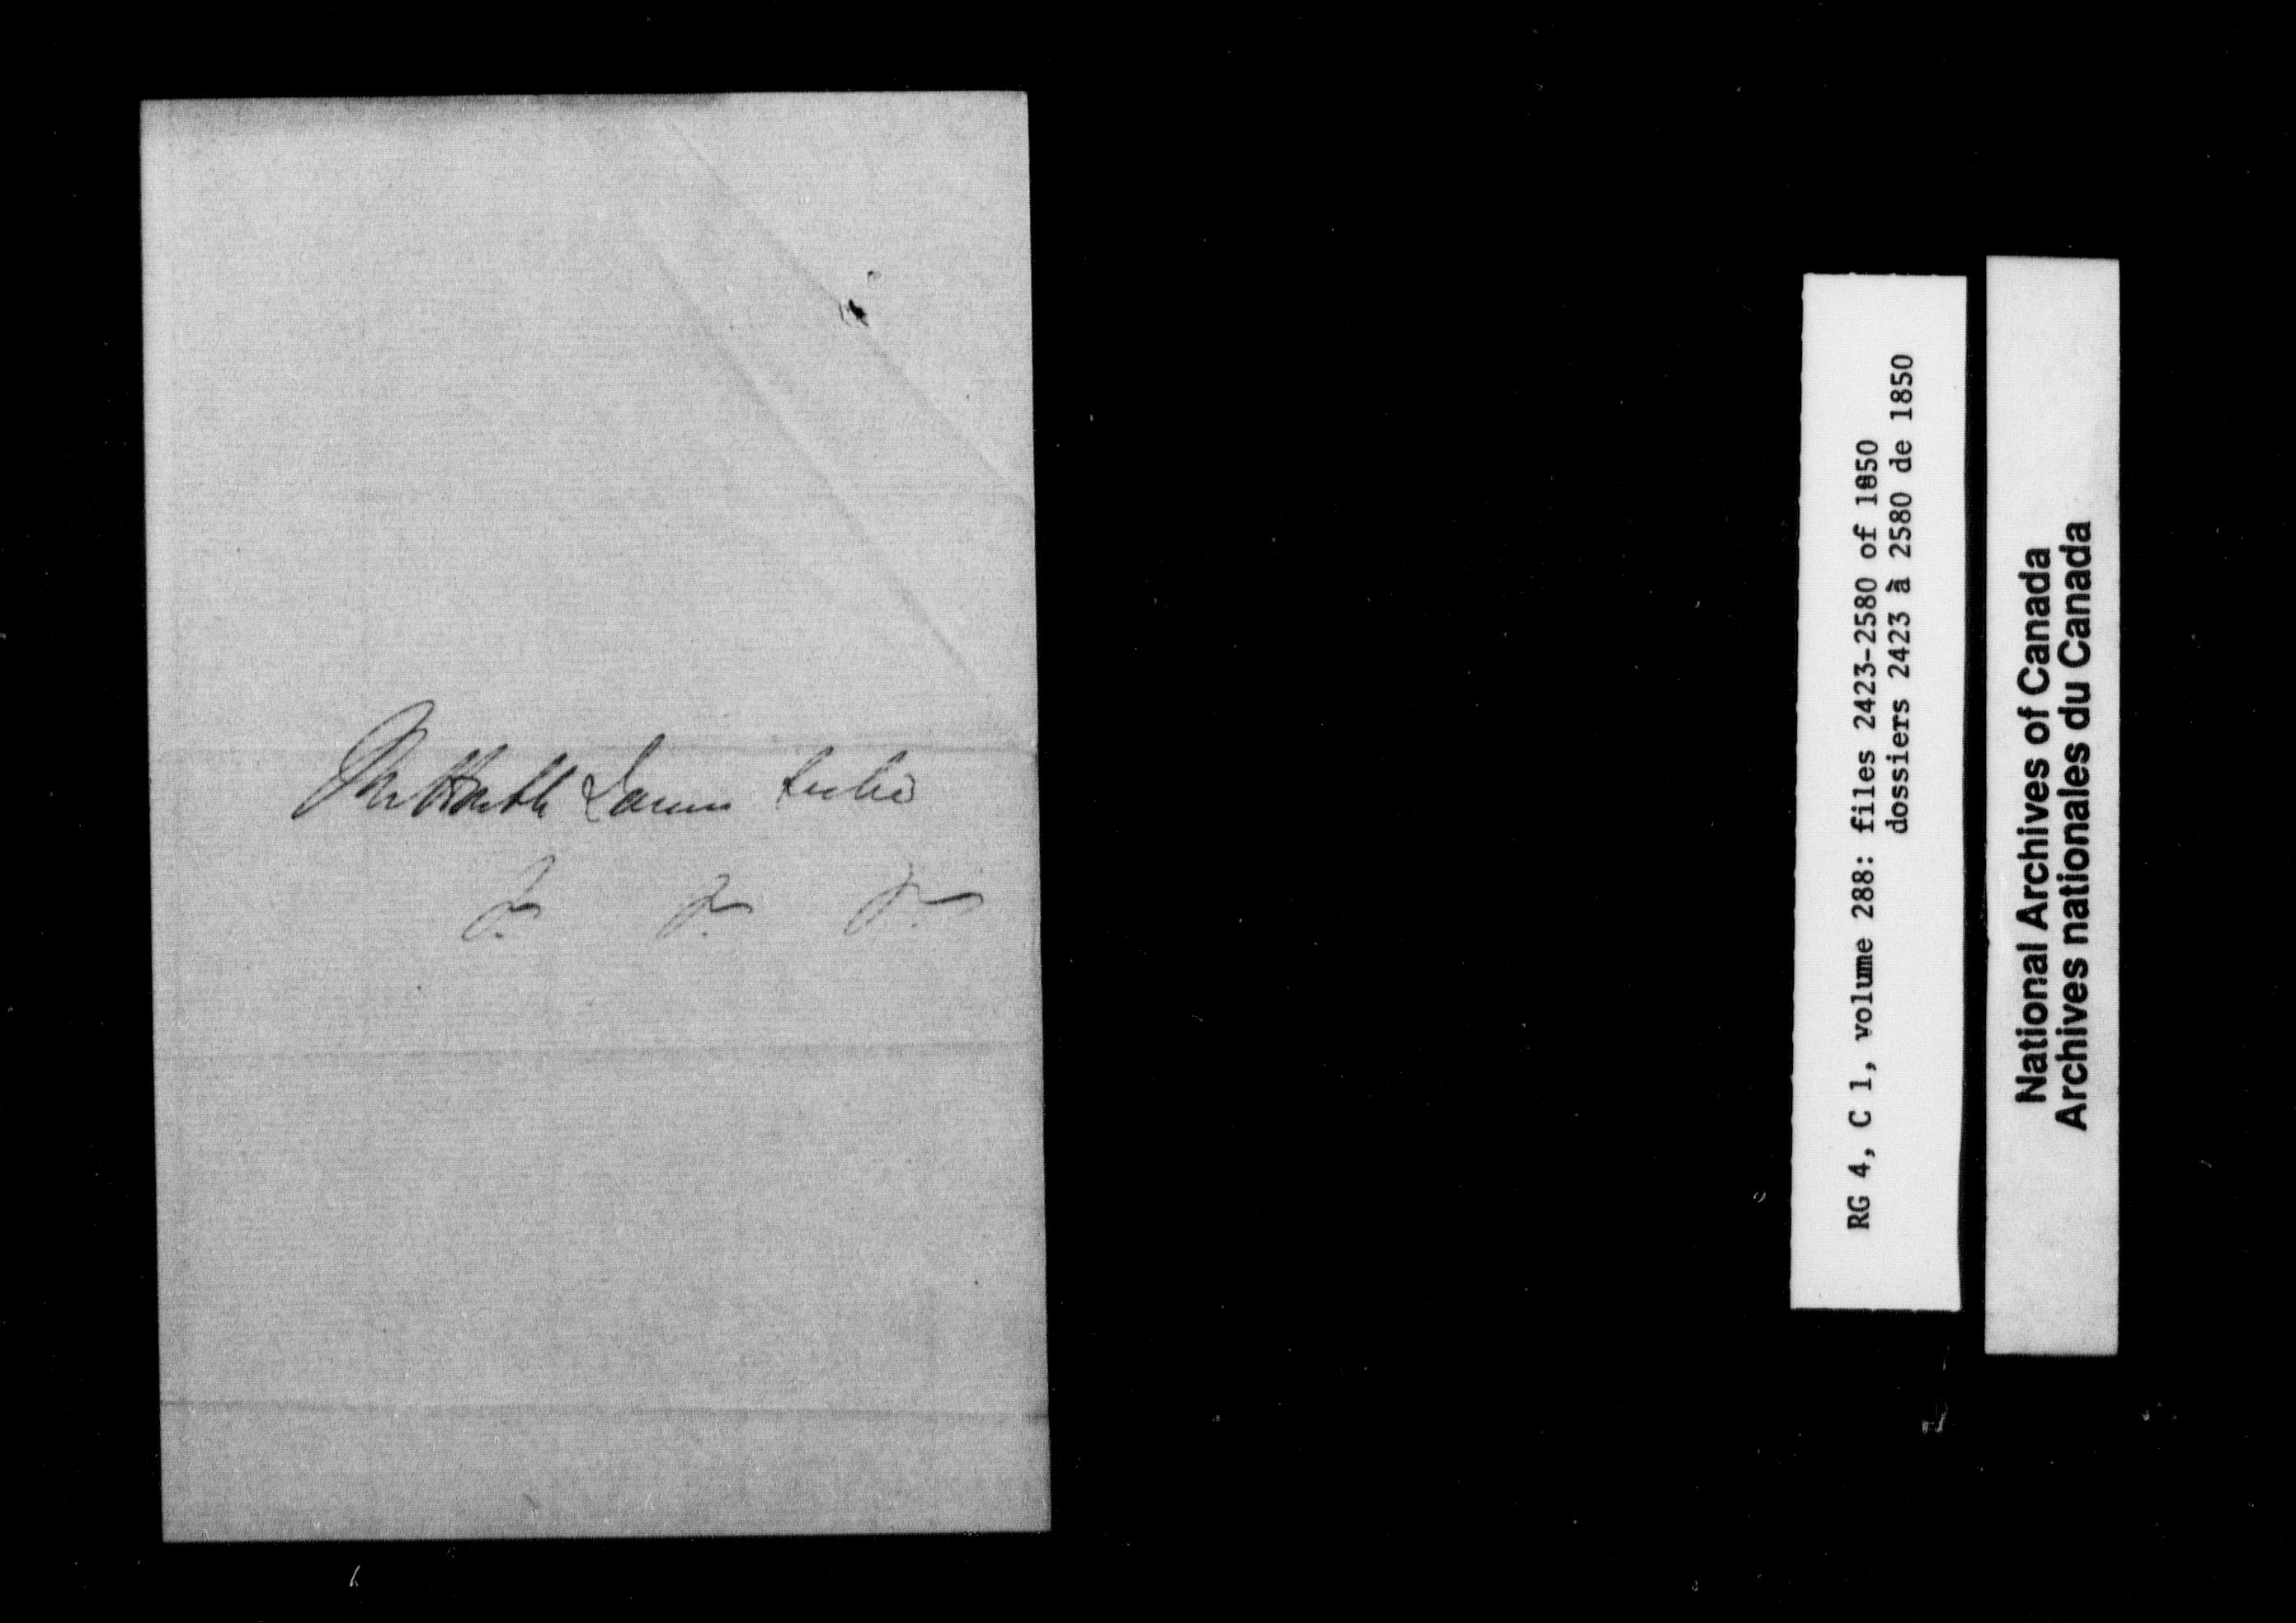 The Honble James Leslie
&c. &c. &c.
RG 4, C 1, volume 288: files 2423-2580 of 1850
dossiers 2423 à 2580 de 1850
National Archives of Canada
Archives nationales du Canada